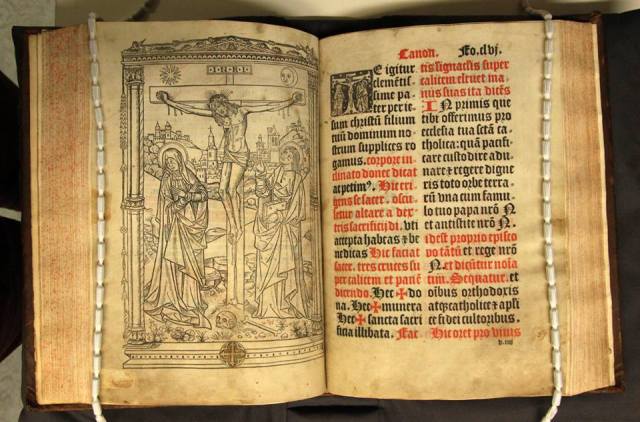 Canon. Fo.cvj.
TE igitur
clemẽtis-
sime pa-
ter per ie-
sum christũ filium
tuũ dominum no-
strum supplices ro
gamus. corpore in-
clinato donec dicat
ac petim⁹. Hic eri-
gens se sacer. oscu-
letur altare a dex-
tris sacrificij di. vti
accepta habeas ⁊ be
nedicas Hic faciat
sacer. tres cruces su
per calicem et panẽ
dicendo. Hec ✠ do
na. Hec ✠ munera
Hec ✠ sancta sacri
ficia illibata. Fac
tis signaculis super
calicem eleuet ma-
nus suas ita dicẽs
IN primis que
tibi offerimus pro
ecclesia tua sctã ca-
tholica: quã pacifi-
care custodire adu
nare ⁊ regere digne
ris toto orbe terra-
rũ vna cum famu-
lo tuo papa nrõ N.
et antistite nrõ N.
id est proprio episco
po tãtũ et rege nrõ
N. et dicũtur noĩa
tim. Sequatur. et
oĩbus orthodoxis
atqꝫ catholice ⁊ apli
ce fidei cultoribus.
Hic oret pro viuis